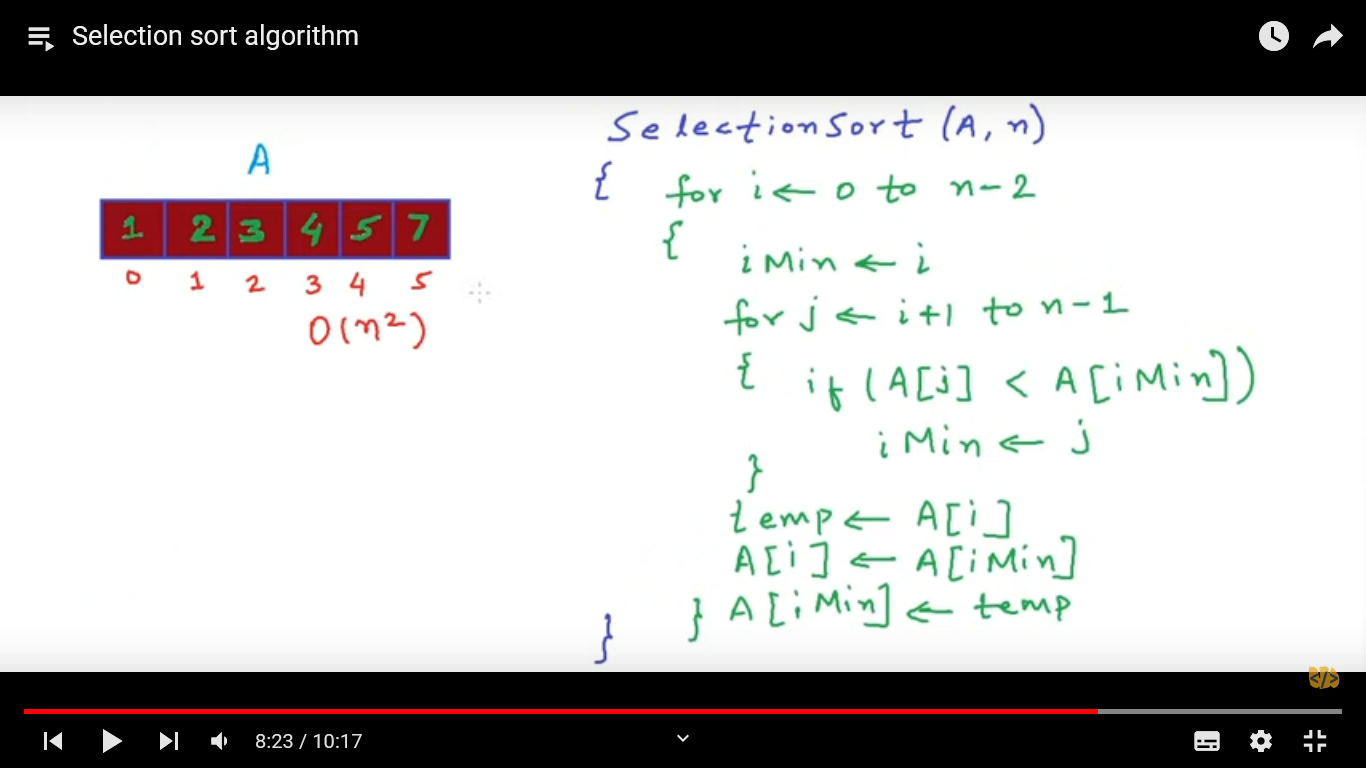 Selection sort algorithm
A
1 2 3 4 5 7
0 1 2 3 4 5
O(n²)
SelectionSort (A, n)
{ for i ← 0 to n-2
{
iMin ← i
for j ← i+1 to n-1
{ if (A[j] < A[iMin])
iMin ← j
}
temp ← A[i]
A[i] ← A[iMin]
} A[iMin] ← temp
}
</>
8:23 / 10:17